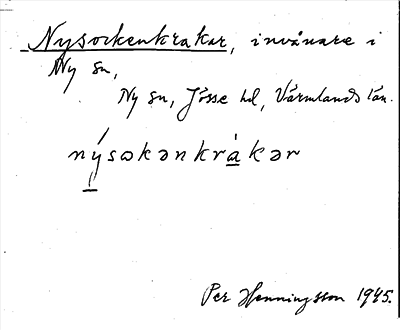 Nysockenkrakar, invånare i
Ny sn,
Ny sn, Jösse hd, Värmlands län.
nýsωkənkràkər
Per Henningsson 1945.